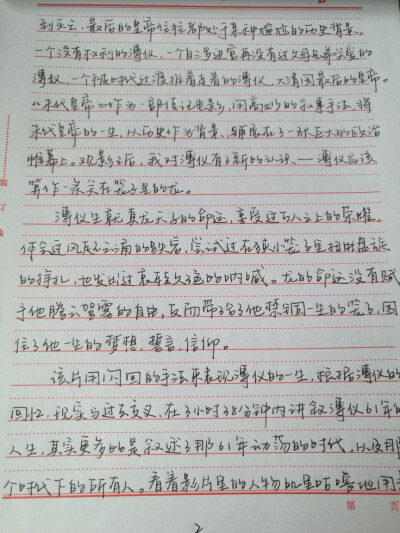 到灭亡,最后的皇帝往往都处于某种尴尬的历史背景。
一个没有权利的溥仪,一个自三岁进宫再没有过父母兄弟关爱的
溥仪,一个被时代过渡推着走着的溥仪,大清国最后的皇帝。
《末代皇帝》作为一部传记电影,用高妙的叙事手法,将
末代皇帝的一生,以历史作为背景,铺展在了一张巨大的政治
帷幕上。观影之后,我对溥仪有了新的认识——溥仪应该
算作一条关在笼子里的龙。
溥仪生就真龙天子的命运,享受过万人之上的荣耀,
体会过风
的挣扎,也发出过
的呐喊。龙的命运没有赋
予他腾云驾雾的自由,反而带给了他禁锢一生的笼子,困
住了他一生的梦想,誓言,信仰。
该片用闪回的手法来表现溥仪的一生,根据溥仪的
回忆,现实与过去交叉,在3小时38分钟内讲叙溥仪61年的
人生,其实更多的是叙述了那61年动荡的时代,以及那
个时代下的所有人。看着影片里的人物叽里咕噜地用英
第 页
2
装
订
线